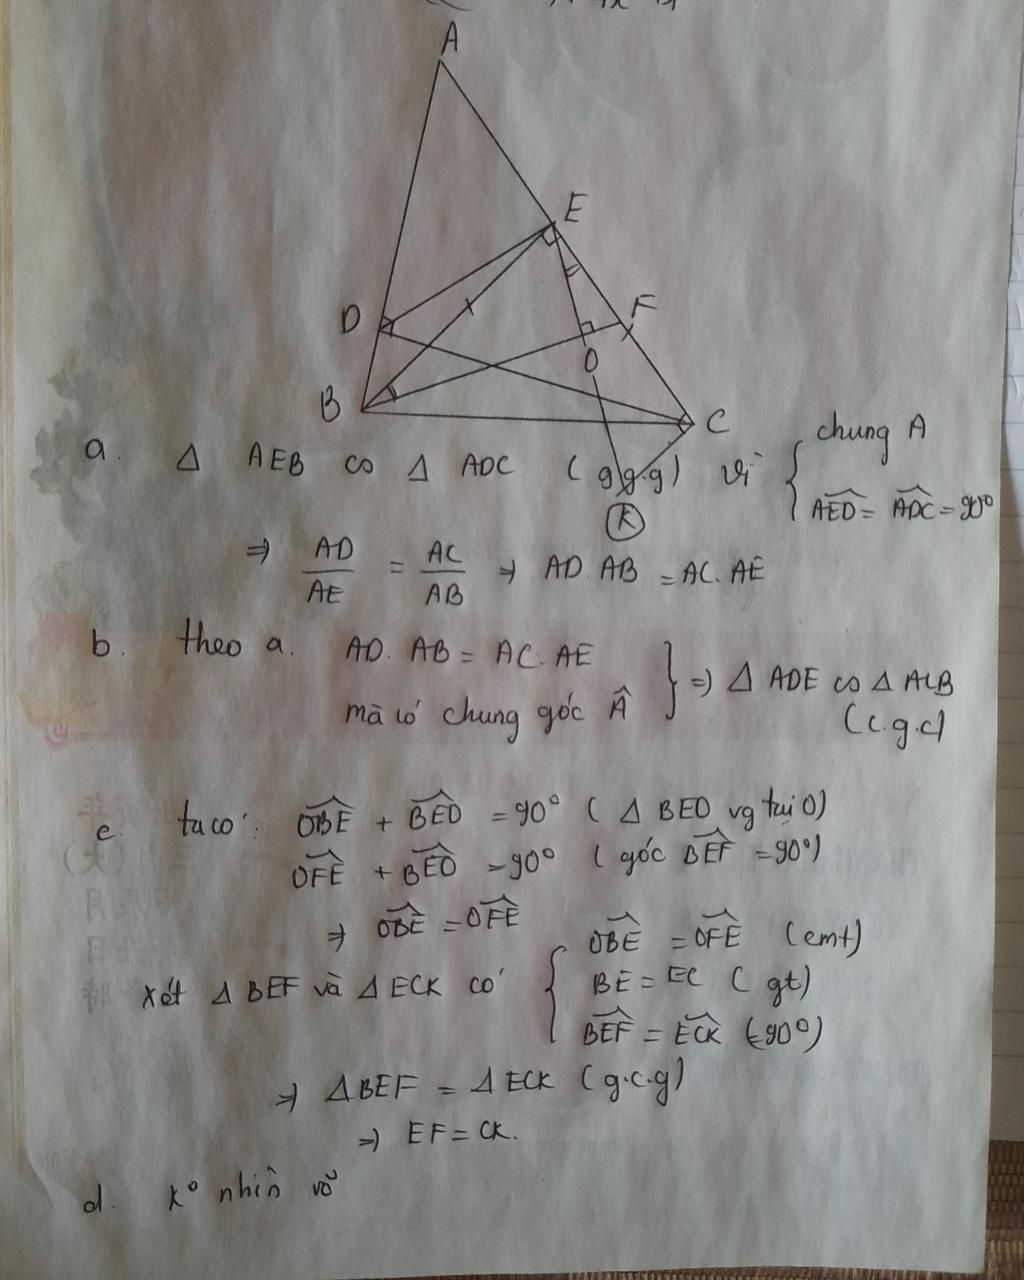 A
E
D
F
O
B
C
K
a. Δ AEB ᔕ Δ ADC (g.g.g) vì { chung A
AED = ADC = 90°
⇒ AD/AE = AC/AB ⇒ AD. AB = AC. AE
b. theo a. AD. AB = AC. AE
mà có chung góc Â } ⇒ Δ ADE ᔕ Δ ACB
(c.g.c)
c. ta có: OBE + BEO = 90° (Δ BEO vg tại O)
OFE + BEO = 90° (góc BEF = 90°)
⇒ OBE = OFE
OBE = OFE (cmt)
xét Δ BEF và Δ ECK có { BE = EC (gt)
BEF = ECK (=90°)
⇒ Δ BEF = Δ ECK (g.c.g)
⇒ EF = CK.
d. k° nhìn rõ